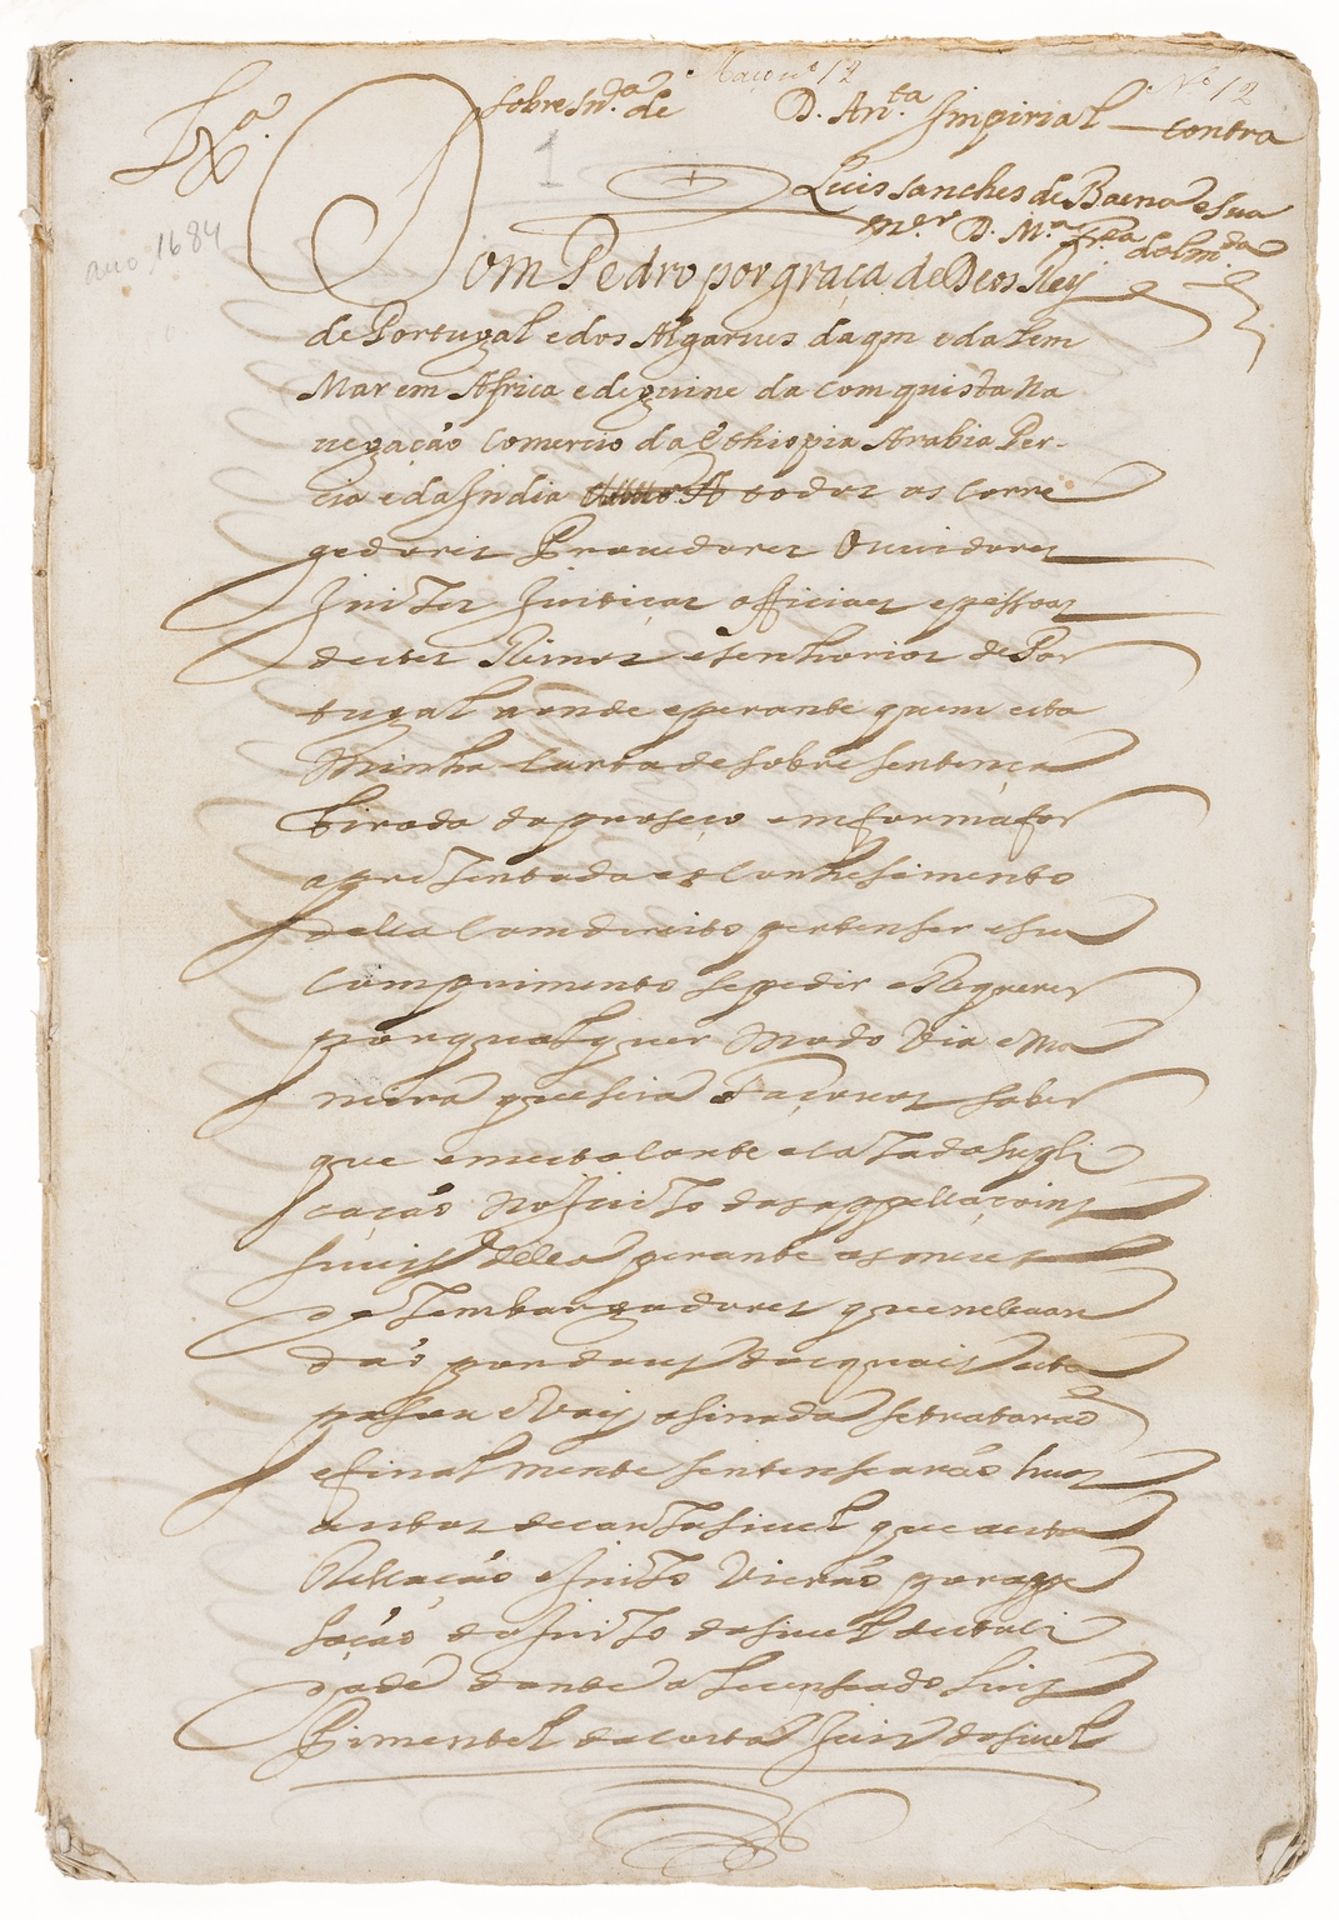 Maço nº 12
Nº 12
Lxª.
sobre Snᵈᵃ. de D. Anᵗᵃ. Impirial contra
1
Luis sanches de Baena e sua
mᵉʳ D. Mª frᶜᵃ dalmᵈᵃ
ano 1684
Dom Pedro por graça de Deos Rey
de Portugal e dos Algarues daqm e dalem
Mar em Africa e de guine da comquista Na
uegação comercio da Ethiopia Arabia Per-
cia e da India A todos os Corre
gedores Prouedores Ouuidores
Juizes Justiças officiaes e pessoas
destes Reinos e senhorios de Por
tugal aonde e perante quem esta
Minha Carta de sobre sentença
tirada do proseço em forma for
aprezentada e o Conhesimento
della Com direito pertenser e seu
comprimento se pedir e Requerer
por qual quer Modo Via e Ma
neira que seia Façouos saber
que em esta Corte e caza da supli
cação No Juizo das appellaçoins
siueis della perante os meus
dezembargadores que nella an
dão por dous dos quais esta
pasou e Vay asinada se tratarão
e final mente sentensearão huns
autos de cauza siuel que a esta
Rellação e Juizo Vierão por appe
lação do Juizo do siuel desta ci
dade dante o lecenseado Luis
Pimentel da Costa Juis do siuel